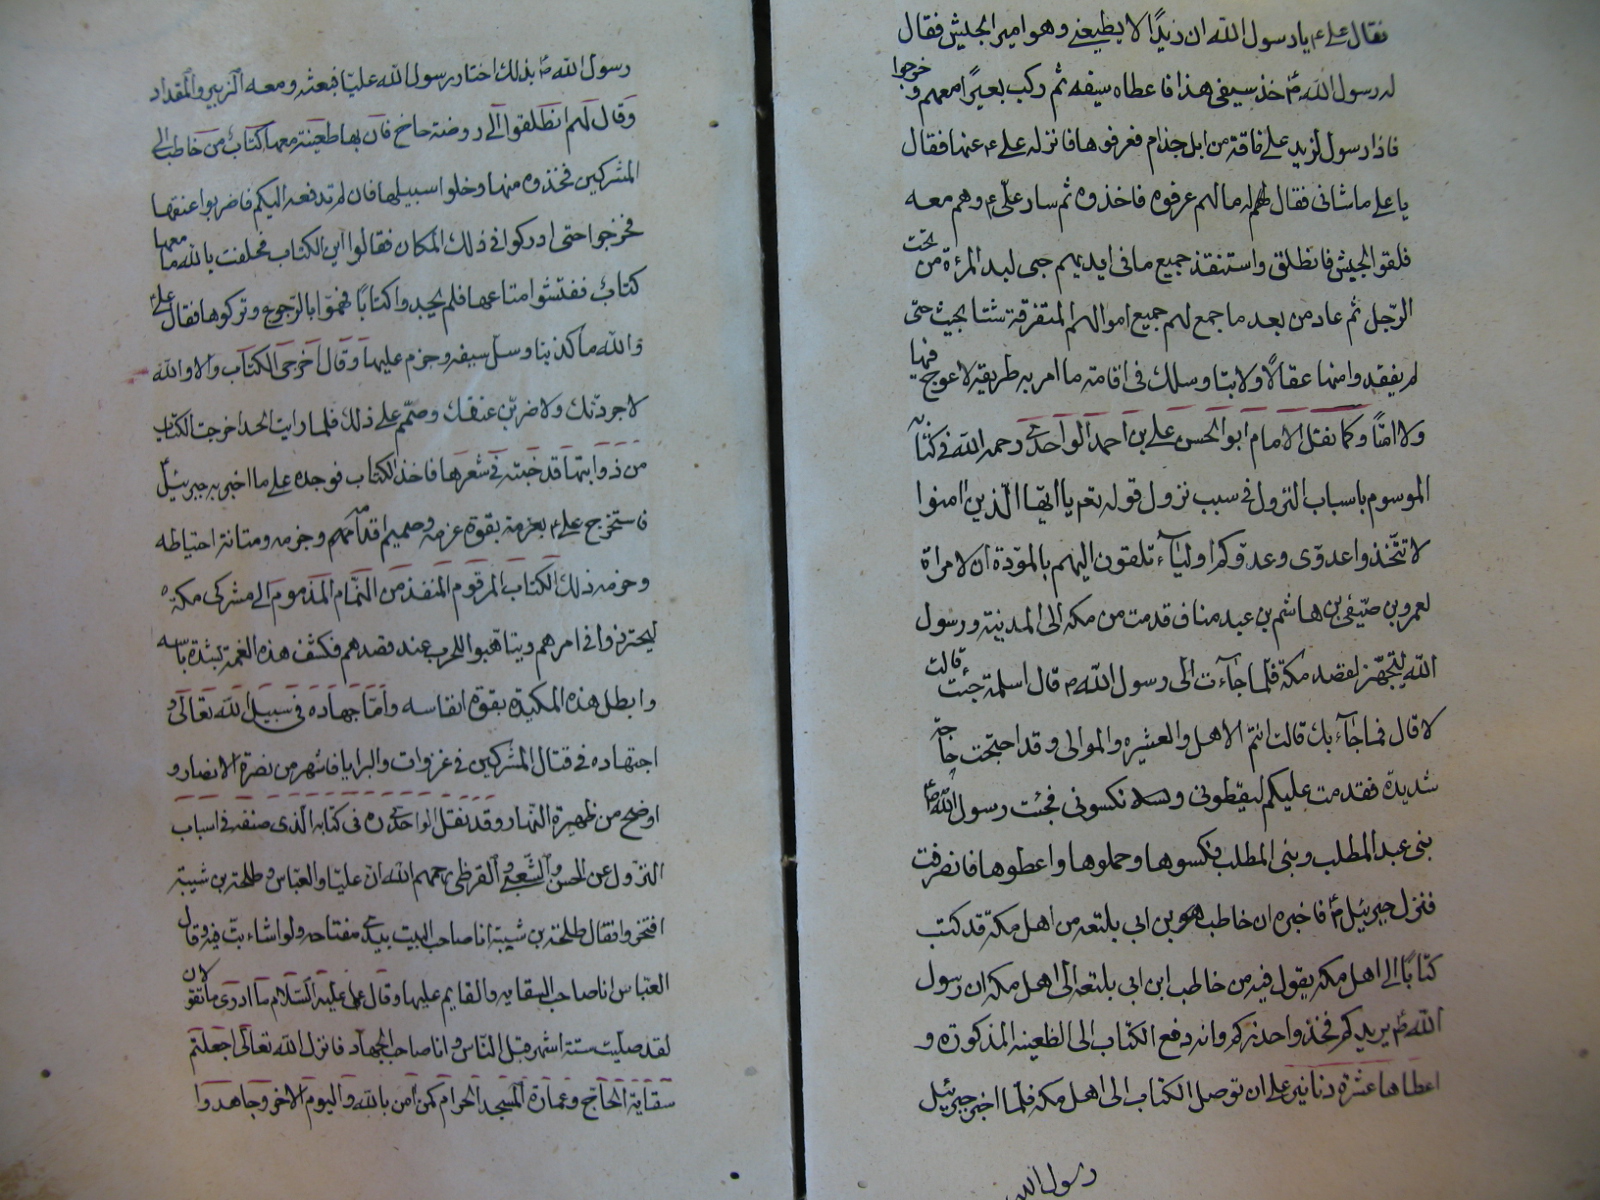 فقال على ع م يا رسول الله ان زيدًا لا يطيعنى وهو امير الجيش فقال
له رسول الله ص خذ سيفى هذا فاعطاه سيفه ثم ركب بعيرًا معهم وخرجوا
فاذا رسول لزيد على ناقة من ابل جذام فعرفوها فانزله على ع م عنها فقال
يا على ما شانى فقال لهم له مالهم عرفوه فاخذوه ثم سار علىّ ع م وهم معه
فلقوا الجيش فانطلق واستنقذ جميع ما فى ايديهم حتى لبد المرءة من تحت
الرّجل ثم عاد من بعد ما جمع لهم جميع اموالهم المتفرقة شتتا بحيث حتى
لم يفقدوا منها عقالًا ولا بتا وسلك فى اقامة ما امر به طريقة لا عوج فيها
ولا امتًا وكما نقل الامام ابو الحسن على بن احمد الواحدى رحمه الله فى كتابه
الموسوم باسباب النزول فى سبب نزول قوله تعـ يا ايّها الّذين امنوا
لا تتّخذوا عدوّى وعدوّكم اوليآء تلقون اليهم بالموّدة ان لامراة
لعمرو بن صيفى بن هاشم بن عبد مناف قدمت من مكه الى المدينة ورسول
الله يتجهّز لقصد مكّة فلما جاءت الى رسول الله ص قال اسلمة جئت قالت
لا قال فما جآء بك قالت انتم الاهل والعشيره والموالى وقد احتجت حاجة
شديدة فقدمت عليكم ليعطونى و تكسونى فحثّ رسول الله ص
بنى عبد المطلب وبنى المطلب فكسوها وحملوها واعطوها فانصرفت
فنزل جبرئيل ع فاخبره ان خاطب بن ابى بلتعه من اهل مكّة قد كتب
كتابًا الى اهل مكه يقول فيه من خاطب ابن ابى بلتعه الى اهل مكه ان رسول
الله ص يريدكم فخذوا حذركم وانه دفع الكتاب الى الظعينه المذكورة و
اعطاها عشرة دنانير على ان توصل الكتاب الى اهل مكه فلمّا اخبر جبرئيل
رسول الله
رسول الله ص بذلك اختار رسول الله عليّا فبعثه ومعه الزبير والمقداد
وقال لهم انطلقوا الى روضة خاخ فان بها ظعينة معها كتاب من خاطب الى
المشركين فخذوه منها وخلوا سبيلها فان لم تدفعه اليكم فاضربوا عنقها
فخرجوا حتى ادركوا فى ذلك المكان فقالوا اين الكتاب فحلفت بالله ما معها
كتاب ففتشوا متاعها فلم يجدوا كتابًا فهمّوا بالرّجوع وتركوها فقال على ع
والله ما كذبنا وسلّ سيفه وجزم عليها وقال اخرجى الكتاب والا والله
لاجردنّك ولاضربنّ عنقك وصمّم على ذلك فلما رايت الجد اخرجت الكتاب
من ذوابتها قد خبته فى شعرها فاخذ الكتاب فوجده على ما اخبر به جبرئيل
فاستخرج على ع م بعزمة بقوة عزمه وصميم اقدامهم وجزمه ومتانة احتياطه
وحزمه ذلك الكتاب المرقوم المنفذ من النمّام المذموم الى مشركى مكة
ليحترزوا فى امرهم ويتاهّبوا للحرب عند قصدهم فكشف هذه الغمة بشدة باسه
وابطل هذه المكيدة بقوة انفاسه وامّا جهاده فى سبيل الله تعالى و
اجتهاده فى قتال المشركين فى غزوات والبرايا فاشهر من نصرة الانصار و
اوضح من ظهيرة النهار وقد نقل الواحدى ره فى كتابه الذى صنفه فى اسباب
النزول عن الحسن والشعبى والقرظى رحمهم الله ان عليّا والعباس وطلحة بن شيبة
افتخروا فقال طلحة بن شيبة انا صاحب البيت بيدى مفتاحه ولو اشاء بتّ فيه وقال
العباس انا صاحب السقاية والقايم عليها وقال على عليه السّلام ما ادرى ما تقولان
لقد صليت ستة اشهر قبل الناس وانا صاحب الجهاد فانزل الله تعالى اجعلتم
سقاية الحاجّ وعمارة المسجد الحرام كمن امن بالله واليوم الاخر وجاهدوا